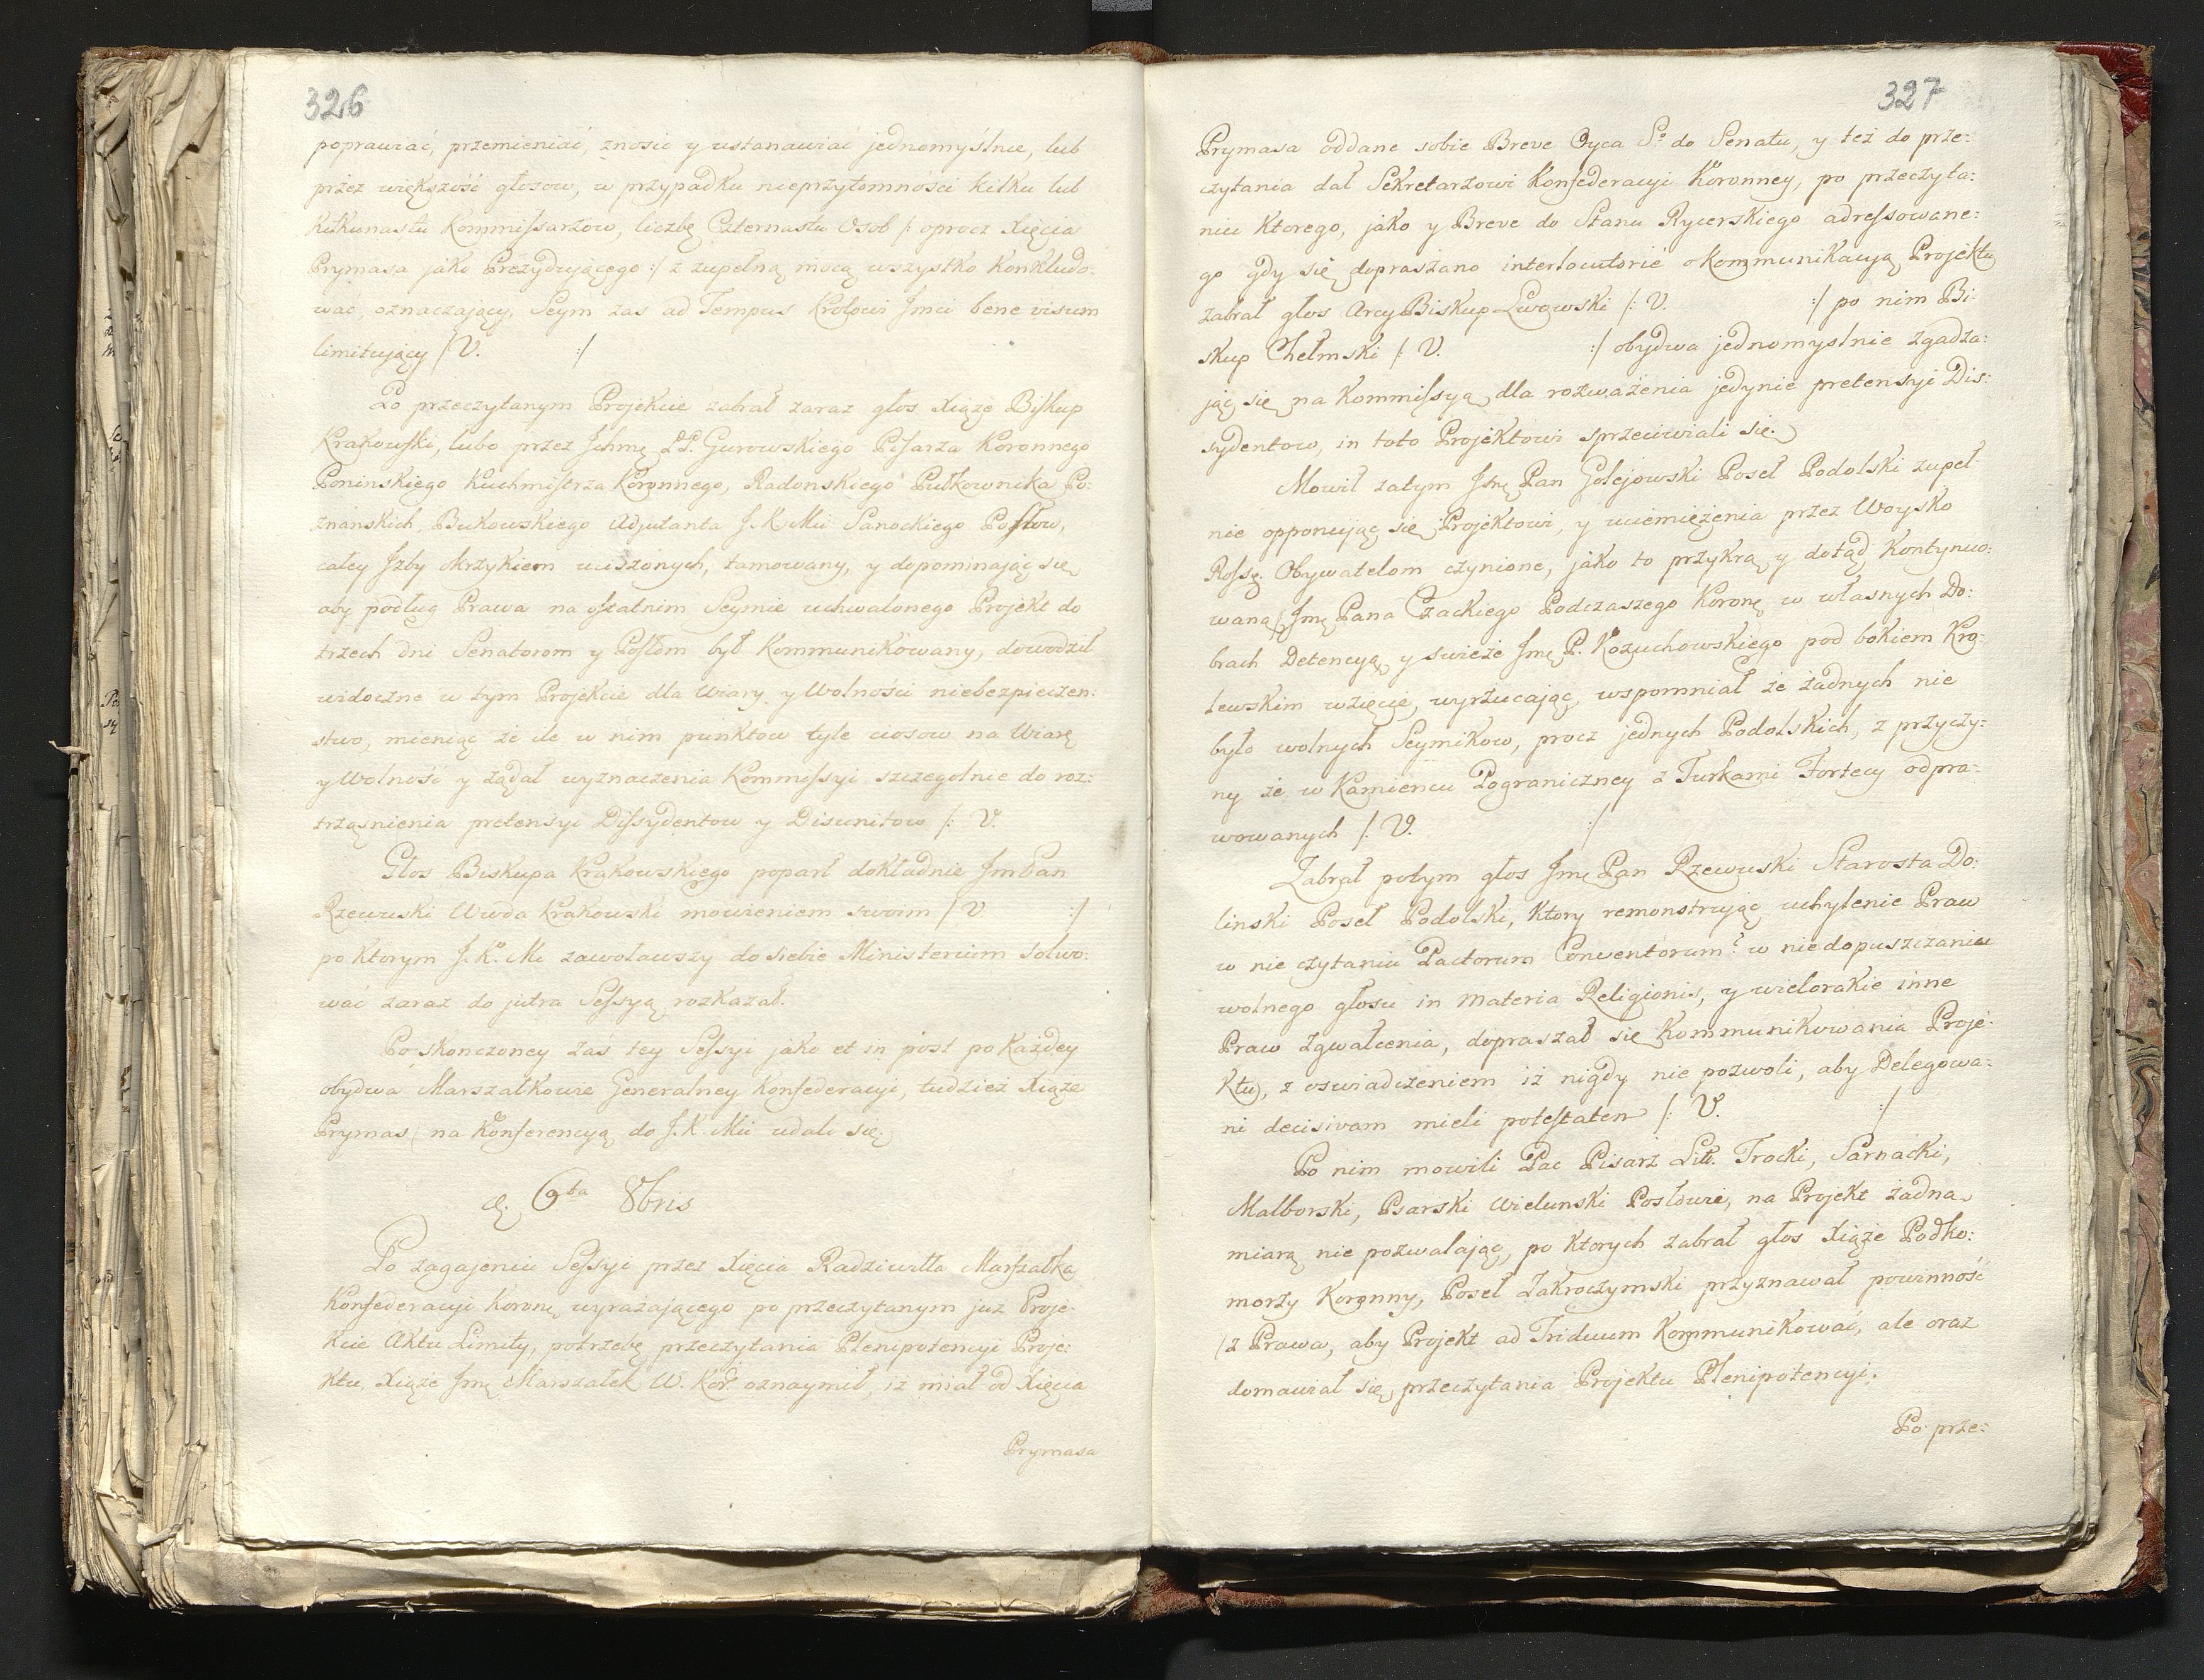 326
poprawiać, przemieniać, znosić y ustanawiać jednomyślnie, lub
przez większość głosow, w przypadku nieprzytomności kilku lub
kilkunastu Kommissarzow, liczbę Czternastu Osob /: oprocz Xięcia
Prymasa jako Prezydującego :/ z zupełną mocą wszystko konkludo:
wać, oznaczający, Seym zas ad Tempus Krolowi Jmci bene visum
limitujący /: V. :/
Po przeczytanym Projekcie zabrał zaraz głos Xiąze Biskup
Krakowski, lubo przez Ichmę PP. Gurowskiego Pisarza Koronnego
Poninskiego Kuchmistrza Koronnego, Radonskiego Pułkownika Po:
znanskich, Bukowskiego Adjutanta J. K. Mci Sanockiego Posłow,
całey Izby okrzykiem uciszonych, tamowany, y dopominając się
aby podług Prawa na ostatnim Seymie uchwalonego Projekt do
trzech dni Senatorom y Posłom był Kommunikowany, dowodził
widoczne w tym Projekcie dla Wiary y Wolności niebezpieczen:
stwo, mieniąc że ile w nim punktow tyle ciosow na Wiarę
y Wolność y żądał wyznaczenia Kommissyi szczegolnie do roz:
trząsnienia pretensyi Dissydentow y Disunitow /: V.
Głos Biskupa Krakowskiego poparł dokładnie Jm Pan
Rzewuski Wwda Krakowski mowieniem swoim /: V :/
po ktorym J. K. Mc zawoławszy do siebie Ministerium solwo:
wać zaraz do jutra Sessyą rozkazał.
Po skonczoney zas tey Sessyi jako et in post po każdey
obydwa Marszałkowie Generalney Konfederacyi, tudziez Xiąze
Prymas na Konferencyą do J. K. Mci udali się.
d. 6ta 8bris
Po zagajeniu Sessyi przez Xięcia Radziwiłła Marszałka
Konfederacyi Koronę wyrażającego po przeczytanym już Proje:
kcie Aktu Limity, potrzebę przeczytania Plenipotencyi Proje:
ktu, Xiąze Jmę Marszałek W. Kor. oznaymił, iz miał od Xięcia
Prymasa
327
Prymasa oddane sobie Breve Oyca S.o do Senatu, y też do prze:
czytania dał Sekretarzowi Konfederacyi Koronney, po przeczyta:
niu ktorego, jako y Breve do Stanu Rycerskiego adressowane:
go gdy się dopraszano interlocutorié o Kommunikacyą Projektu
zabrał głos Arcy Biskup Lwowski /: V. :/ po nim Bi:
skup Chełmski /: V. :/ obydwa jednomyslnie zgadza:
jąc się na Kommissyą dla rozważenia jedynie pretensyi Dis:
sydentow, in toto Projektowi sprzeciwiali się.
Mowił zatym Jmę Pan Golejowski Poseł Podolski zupeł:
nie opponując się Projektowi, y uciemiężenia przez Woysko
Rossę. Obywatelom czynione, jako to przykrą y dotąd kontynuo:
waną Jmę Pana Czackiego Podczaszego Koronę w własnych Do:
brach Detencyą, y swieże Jmę P. Kożuchowskiego pod bokiem Kro:
lewskim wzięcie, wyrzucając, wspomniał że żadnych nie
było wolnych Seymikow, procz jednych Podolskich, z przyczy:
ny że w Kamiencu Pograniczney z Turkami Fortecy odpra:
wowanych /: V. :/
Zabrał potym głos Jmę Pan Rzewuski Starosta Do:
linski Poseł Podolski, ktory remonstrując uchylenie Praw
w nie czytaniu Pactorum Conventorum? w niedopuszczaniu
wolnego głosu in materia Religionis, y wielorakie inne
Praw zgwałcenia, dopraszał się Kommunikowania Proje:
ktu, z oswiadczeniem iż nigdy nie pozwoli, aby Delegowa:
ni decisivam mieli potestatem /: V. :/
Po nim mowili Pac Pisarz Litt. Trocki, Sarnacki,
Malborski, Psarski Wielunski Posłowie, na Projekt żadną
miarą nie pozwalając, po ktorych zabrał głos Xiąże Podko:
morzy Koronny, Poseł Zakroczymski przyznawał powinność
z Prawa, aby Projekt ad Triduum Kommunikować, ale oraz
domawiał się przeczytania Projektu Plenipotencyi.
Po prze: